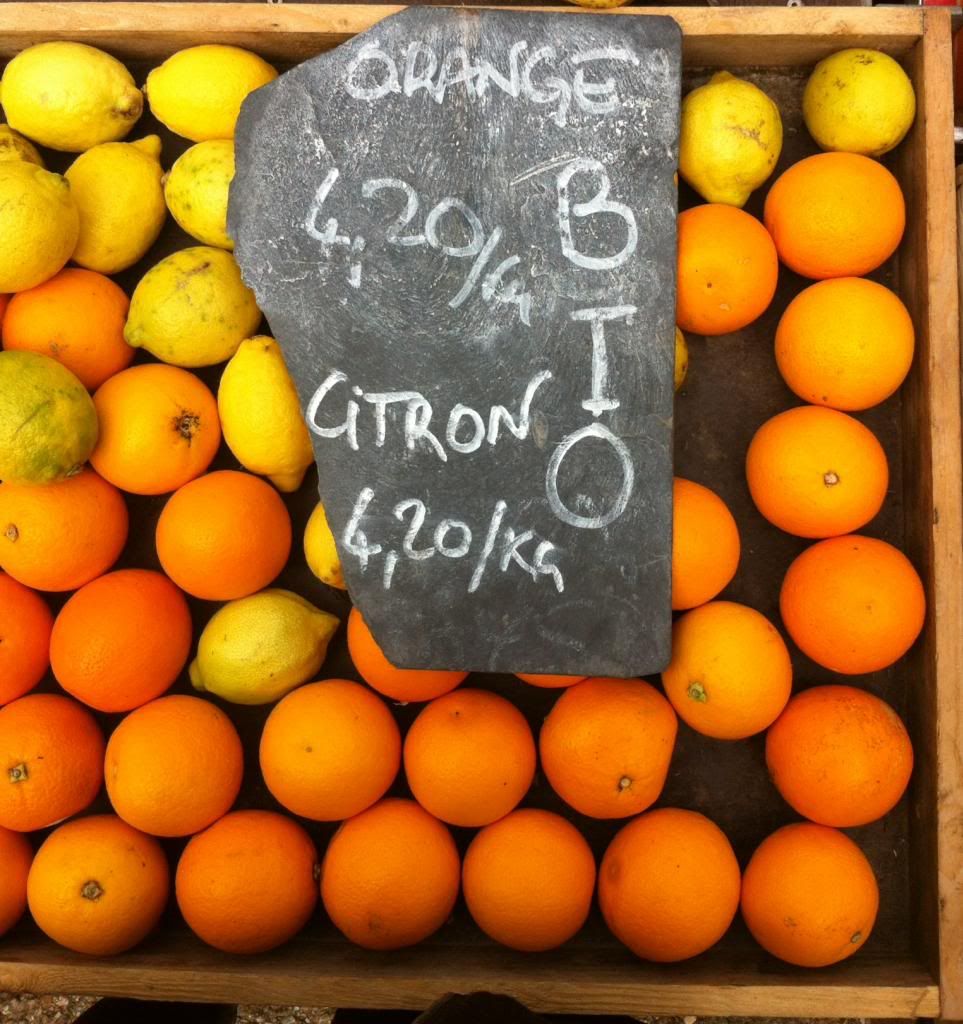 ORANGE
4,20/KG
CITRON
4,20/KG
BIO